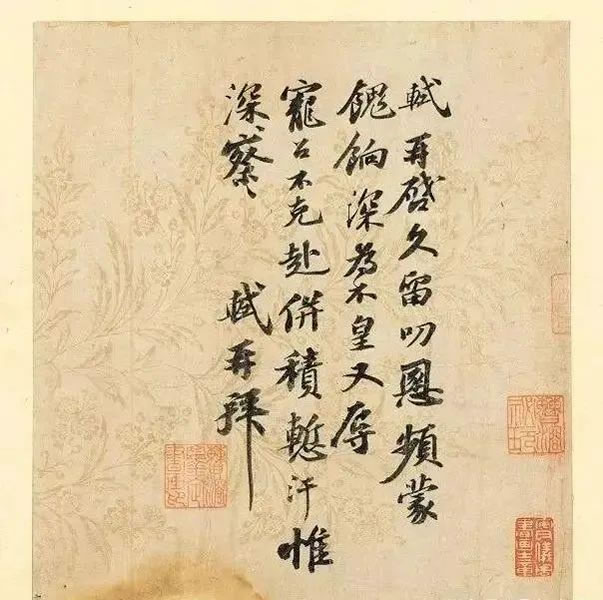 軾再啓久留叨恩頻蒙
餽餉深爲不皇又辱
寵召不克赴併積慙汗惟
深察深察
軾再拜